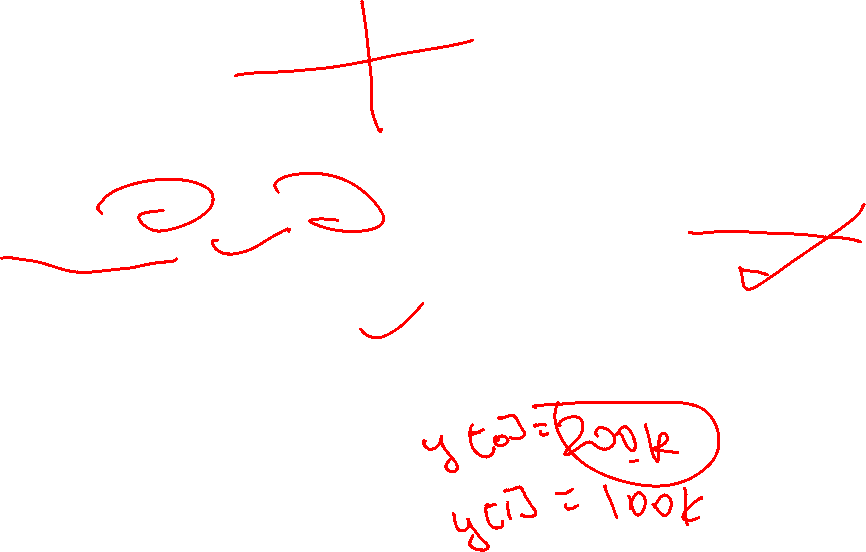 y[0]=200k
y[1] = 100k